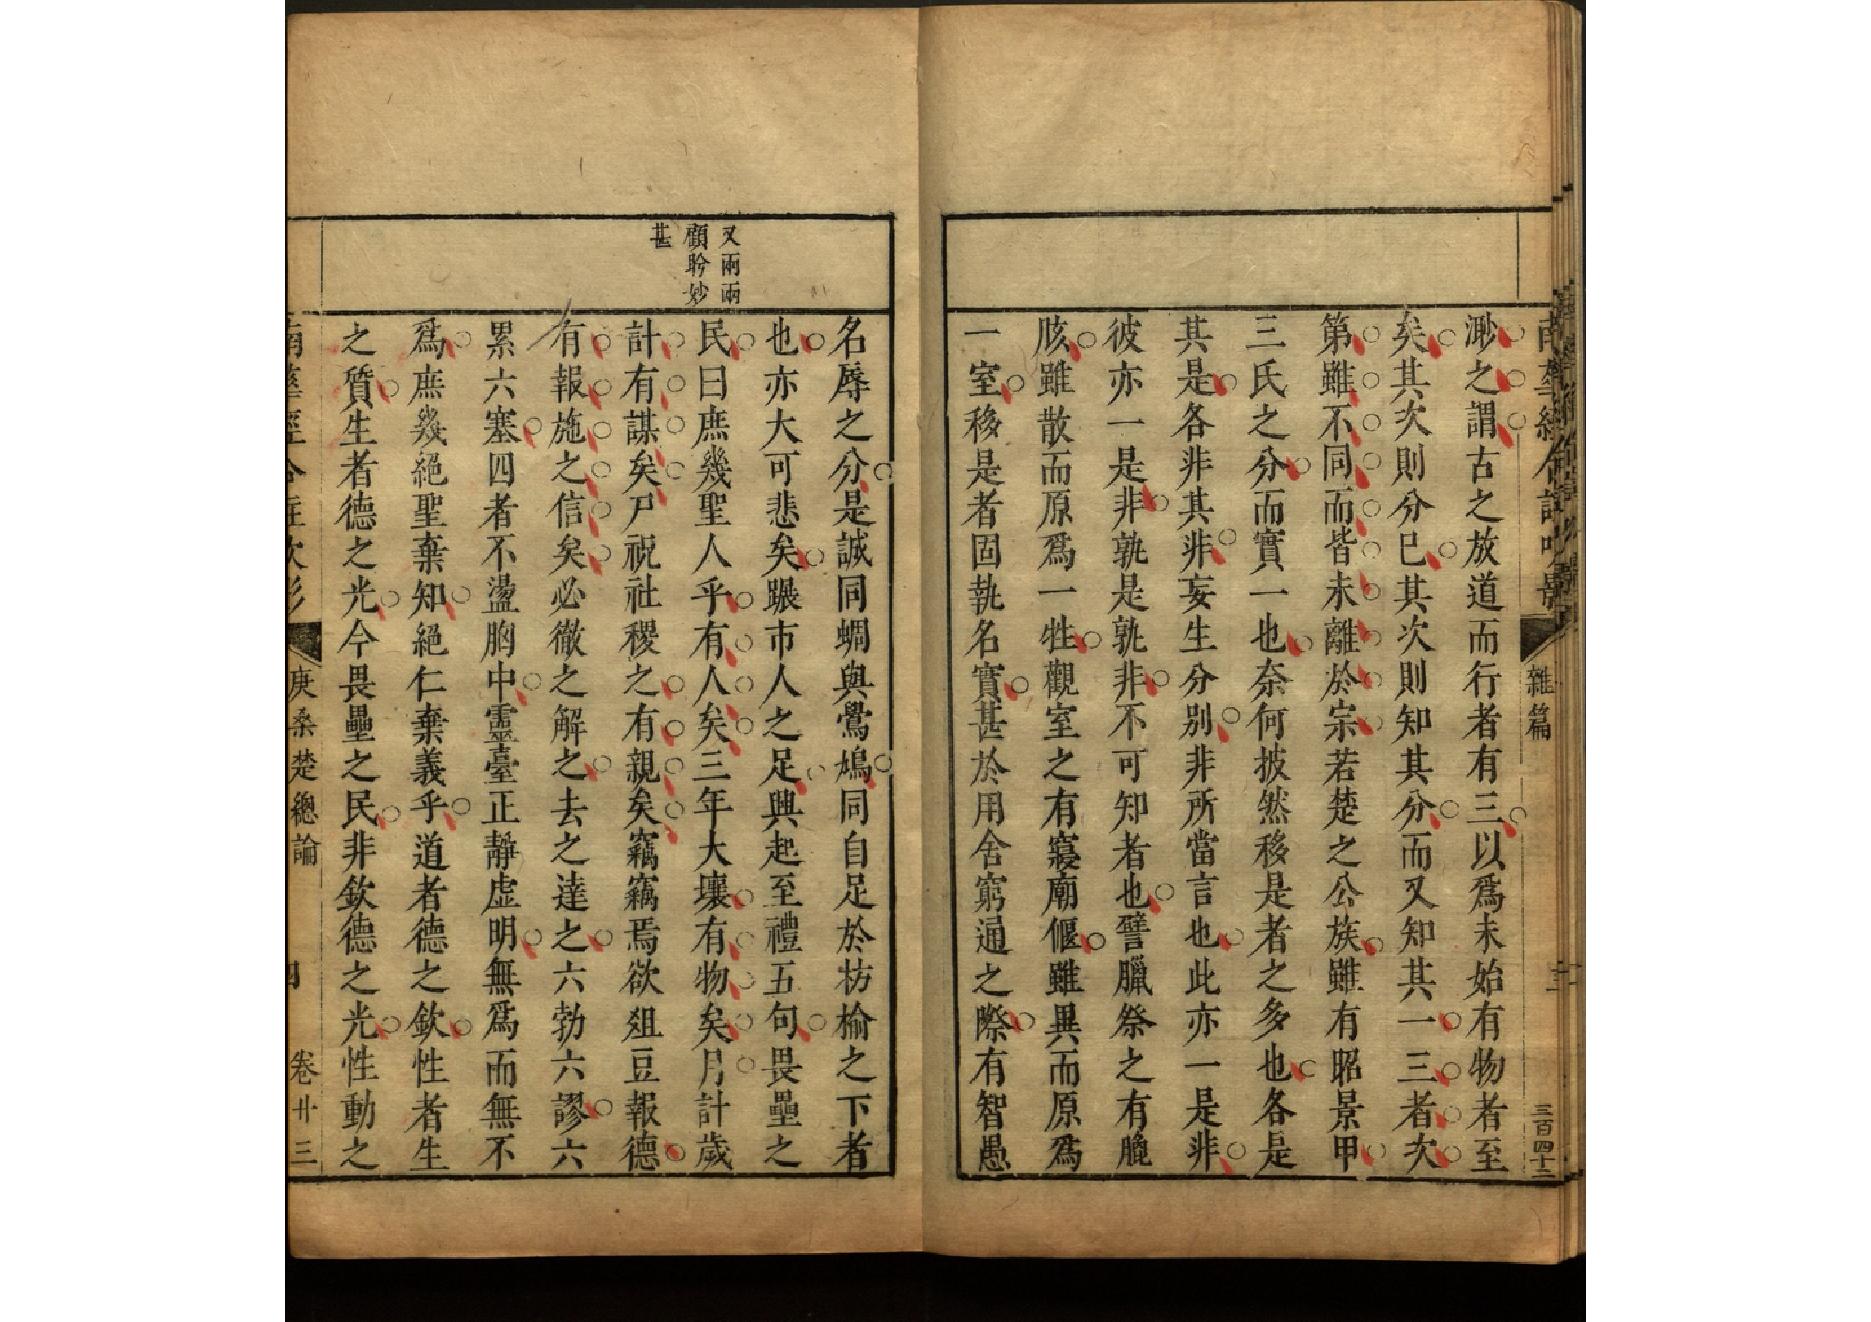 雜篇
三百四十二
渺之謂古之放道而行者有三以爲未始有物者至
矣其次則分已其次則知其分而又知其一三者次
第雖不同而皆未離於宗若楚之公族雖有昭景甲
三氏之分而實一也奈何披然移是者之多也各是
其是各非其非妄生分別非所當言也此亦一是非
彼亦一是非孰是孰非不可知者也譬臘祭之有膍
胲雖散而原爲一牲觀室之有寢廟偃雖異而原爲
一室移是者固執名實甚於用舍窮通之際有智愚
名辱之分是誠同蜩與鷽鳩同自足於枋榆之下者
也亦大可悲矣蹍市人之足興起至禮五句畏壘之
又兩兩
顧盻妙
甚
民曰庶幾聖人乎有人矣三年大壤有物矣月計歲
計有謀矣尸祝社稷之有親矣竊竊焉欲俎豆報德
有報施之信矣必徹之解之去之達之六勃六謬六
累六塞四者不盪胸中靈臺正靜虛明無爲而無不
爲庶幾絕聖棄知絕仁棄義乎道者德之欽性者生
之質生者德之光今畏壘之民非欽德之光性動之
庚桑楚總論
四
卷廿三